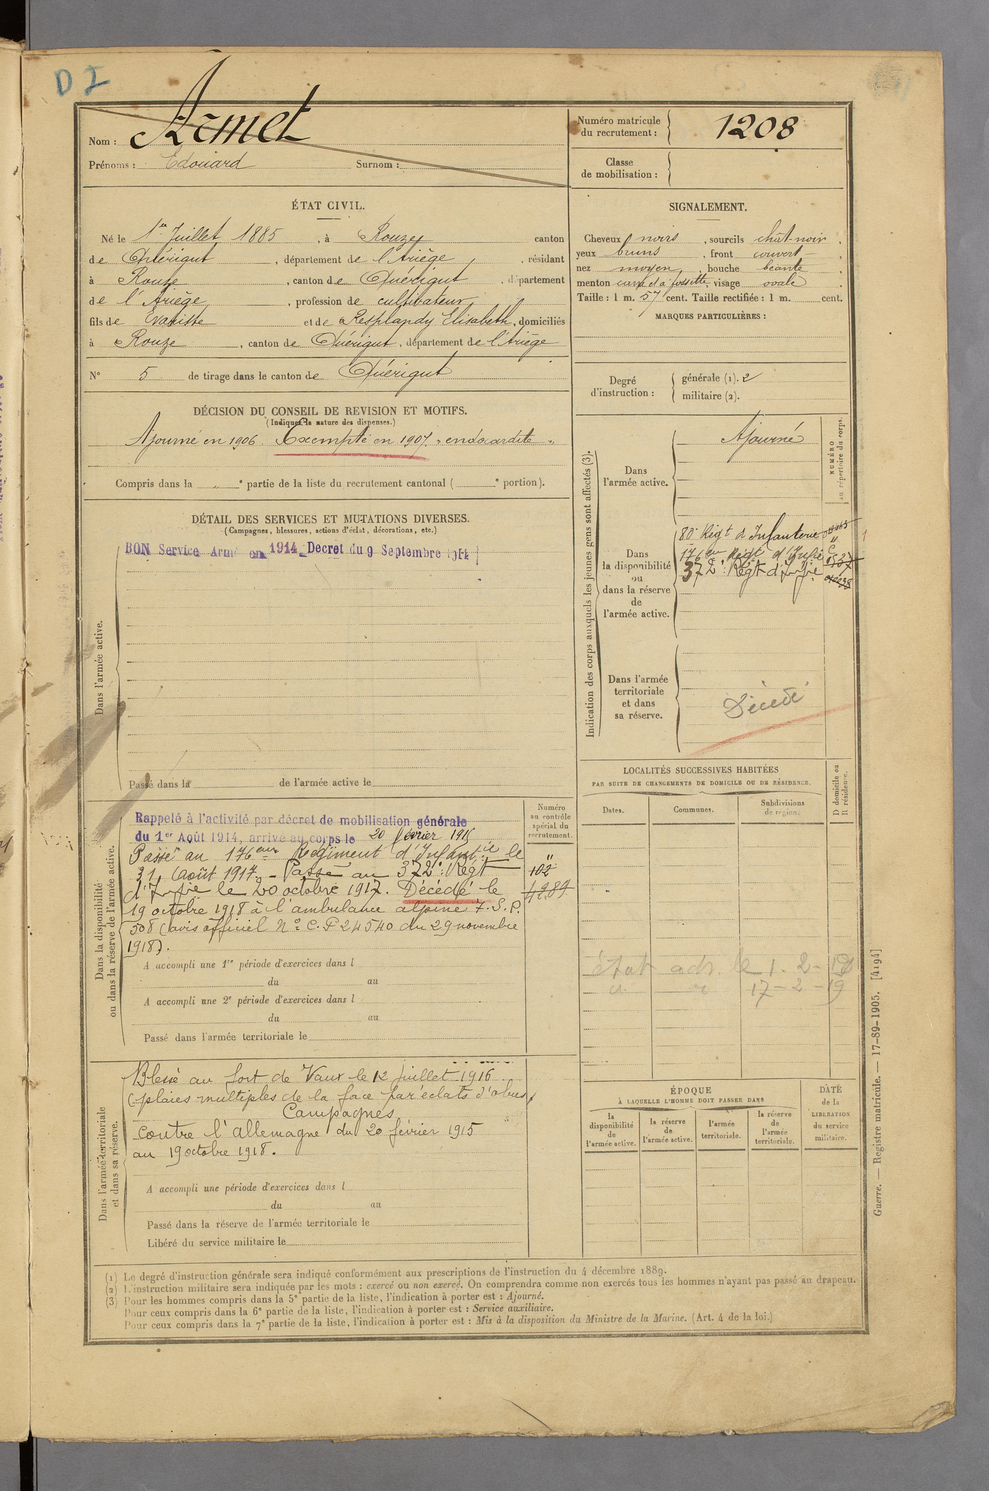 D I
Nom : Armet
Prénoms : Edouard Surnom :
Numéro matricule
du recrutement : 1208
Classe
de mobilisation :
ÉTAT CIVIL.
Né le 1er Juillet 1885, à Rouze, canton
de Quérigut, département de l'Ariège, résidant
à Rouze, canton de Quérigut, département
de l'Ariège, profession de cultivateur,
fils de Evariste et de Resplandy Elisabeth, domiciliés
à Rouze, canton de Quérigut, département de l'Ariège
N° 5 de tirage dans le canton de Quérigut
SIGNALEMENT.
Cheveux noirs, sourcils chât-noir,
yeux bruns, front couvert,
nez moyen, bouche béante,
menton à fossette, visage ovale,
Taille : 1 m. 57 cent. Taille rectifiée : 1 m. cent.
MARQUES PARTICULIÈRES :
Degré
d'instruction :
générale (1). 2
militaire (2).
DÉCISION DU CONSEIL DE REVISION ET MOTIFS.
(Indiquer la nature des dispenses.)
Ajourné en 1906. Exempté en 1907. "endocardite".
Compris dans la " e partie de la liste du recrutement cantonal ( e portion).
DÉTAIL DES SERVICES ET MUTATIONS DIVERSES.
(Campagnes, blessures, actions d'éclat, décorations, etc.)
Dans l'armée active.
BON Service Armé en 1914 Decret du 9 Septembre 1914
Passé dans la de l'armée active le
Indication des corps auxquels les jeunes gens sont affectés (3).
NUMÉRO
au répertoire du corps.
Dans
l'armée active.
Ajourné
Dans
la disponibilité
ou
dans la réserve
de
l'armée active.
80e Régt d'Infanterie
176eme Régt d'Infie
372e Régt d'Infie
Dans l'armée
territoriale
et dans
sa réserve.
Décédé
Dans la disponibilité
ou dans la réserve de l'armée active.
Numéro
au contrôle
spécial du
recrutement.
Rappelé à l'activité par décret de mobilisation générale
du 1er Août 1914, arrivé au corps le 20 février 1915
Passé au 176eme Régiment d'Infantie le
31 Août 1917. - Passé au 372e Régt
d'Infie le 20 octobre 1917. Décédé le
19 octobre 1918 à l'ambulance alpine 7. S.P.
508 (avis officiel N° C.P 24540 du 29 novembre
1918).
A accompli une 1re période d'exercices dans l
du au
A accompli une 2e période d'exercices dans l
du au
Passé dans l'armée territoriale le
LOCALITÉS SUCCESSIVES HABITÉES
PAR SUITE DE CHANGEMENTS DE DOMICILE OU DE RÉSIDENCE.
D domicile ou
R résidence.
Dates. Communes. Subdivisions
de région.
état adr. le 1-2-19
17-2-19
Dans l'armée territoriale
et dans sa réserve.
Blessé au fort de Vaux le 12 Juillet 1916
(plaies multiples de la face par éclats d'obus)
Campagnes
Contre l'allemagne du 20 février 1915
au 19 octobre 1918.
A accompli une période d'exercices dans l
du au
Passé dans la réserve de l'armée territoriale le
Libéré du service militaire le
ÉPOQUE
À LAQUELLE L'HOMME DOIT PASSER DANS
la
disponibilité
de
l'armée active.
la réserve
de
l'armée active.
l'armée
territoriale.
la réserve
de
l'armée
territoriale.
DATE
de la
LIBÉRATION
du service
militaire.
(1) Le degré d'instruction générale sera indiqué conformément aux prescriptions de l'instruction du 4 décembre 1889.
(2) L'instruction militaire sera indiquée par les mots : exercé ou non exercé. On comprendra comme non exercés tous les hommes n'ayant pas passé au drapeau.
(3) Pour les hommes compris dans la 5e partie de la liste, l'indication à porter est : Ajourné.
Pour ceux compris dans la 6e partie de la liste, l'indication à porter est : Service auxiliaire.
Pour ceux compris dans la 7e partie de la liste, l'indication à porter est : Mis à la disposition du Ministre de la Marine. (Art. 4 de la loi.)
Guerre. — Registre matricule. — 17-89-1905. [4194]